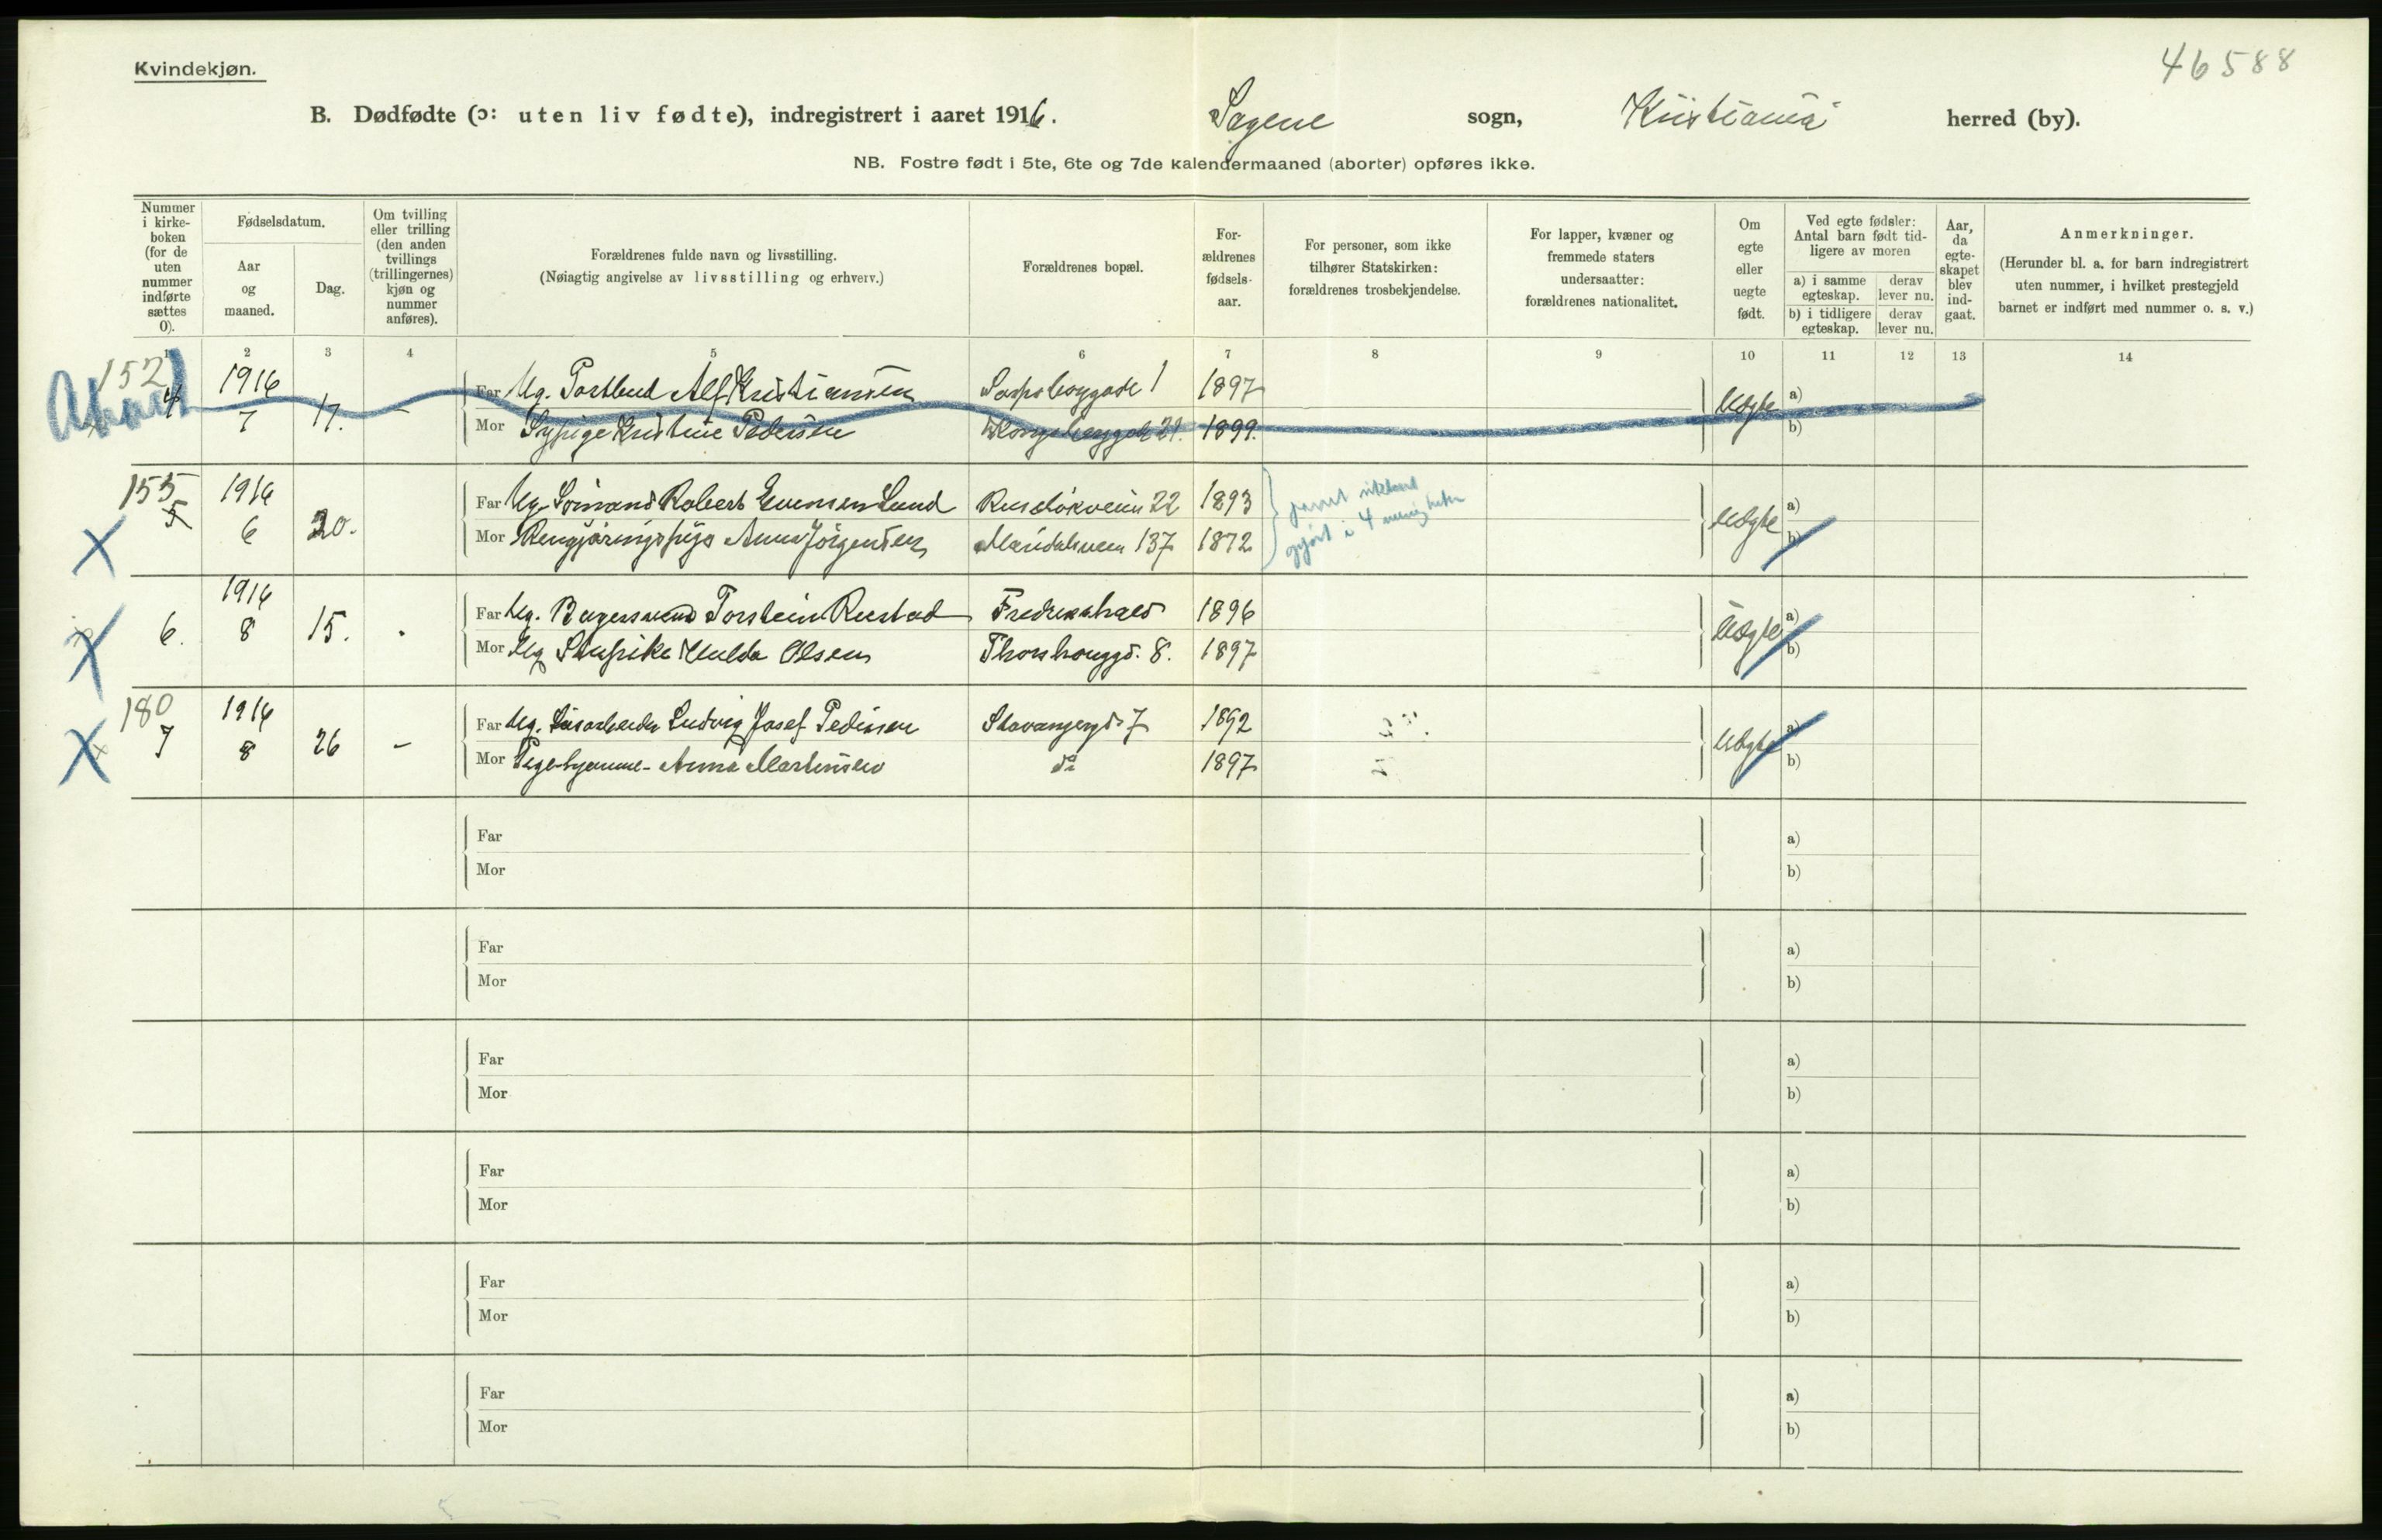 46588
Kvindekjøn.
B. Dødfødte (ɔ: uten liv fødte), indregistrert i aaret 1916. Sagene sogn, Kristiania herred (by).
NB. Fostre født i 5te, 6te og 7de kalendermaaned (aborter) opføres ikke.
Nummer i kirke- boken (for de uten nummer indførte sættes 0).
Fødselsdatum.
Aar og maaned.
Dag.
Om tvilling eller trilling (den anden tvillings (trillingernes) kjøn og nummer anføres).
Forældrenes fulde navn og livsstilling.
(Nøiagtig angivelse av livsstilling og erhverv.)
Forældrenes bopæl.
For- ældrenes fødsels- aar.
For personer, som ikke tilhører Statskirken: forældrenes trosbekjendelse.
For lapper, kvæner og fremmede staters undersaatter: forældrenes nationalitet.
Om egte eller uegte født.
Ved egte fødsler: Antal barn født tid- ligere av moren
a) i samme egteskap. derav lever nu.
b) i tidligere egteskap. derav lever nu.
Aar, da egte- skapet blev ind- gaat.
Anmerkninger.
(Herunder bl. a. for barn indregistrert uten nummer, i hvilket prestegjeld barnet er indført med nummer o. s. v.)
1 2 3 4 5 6 7 8 9 10 11 12 13 14
Abort 152 4 1916 7 17. - Far Ug. Postbud Alf Kristiansen Sarpsborggade 1 1897 Uegte a)
Mor Sypige Kristine Pedersen Kongsberggade 21. 1899. b)
155 5 1916 6 20. Far Ug. Sömand Robert Evensen Lund Ruseløkveien 22 1893 Uegte a)
Mor Rengjøringspige Anna Jörgensen Maridalsveien 137 1872 b)
6. 1916 8 15. Far Ug. Bagersvend Torstein Rustad Fredrikshald 1896 Uegte a)
Mor Ug Hulda Olsen Thorshauggd. 8. 1897 b)
180 7 1916 8 26 - Far Ug. Ludvig Josef Pedersen Stavangergd 7 1892 Uegte a)
Mor Pige hjemme - Anna Martinsen do 1897 b)
Far a)
Mor b)
Far a)
Mor b)
Far a)
Mor b)
Far a)
Mor b)
Far a)
Mor b)
Far a)
Mor b)